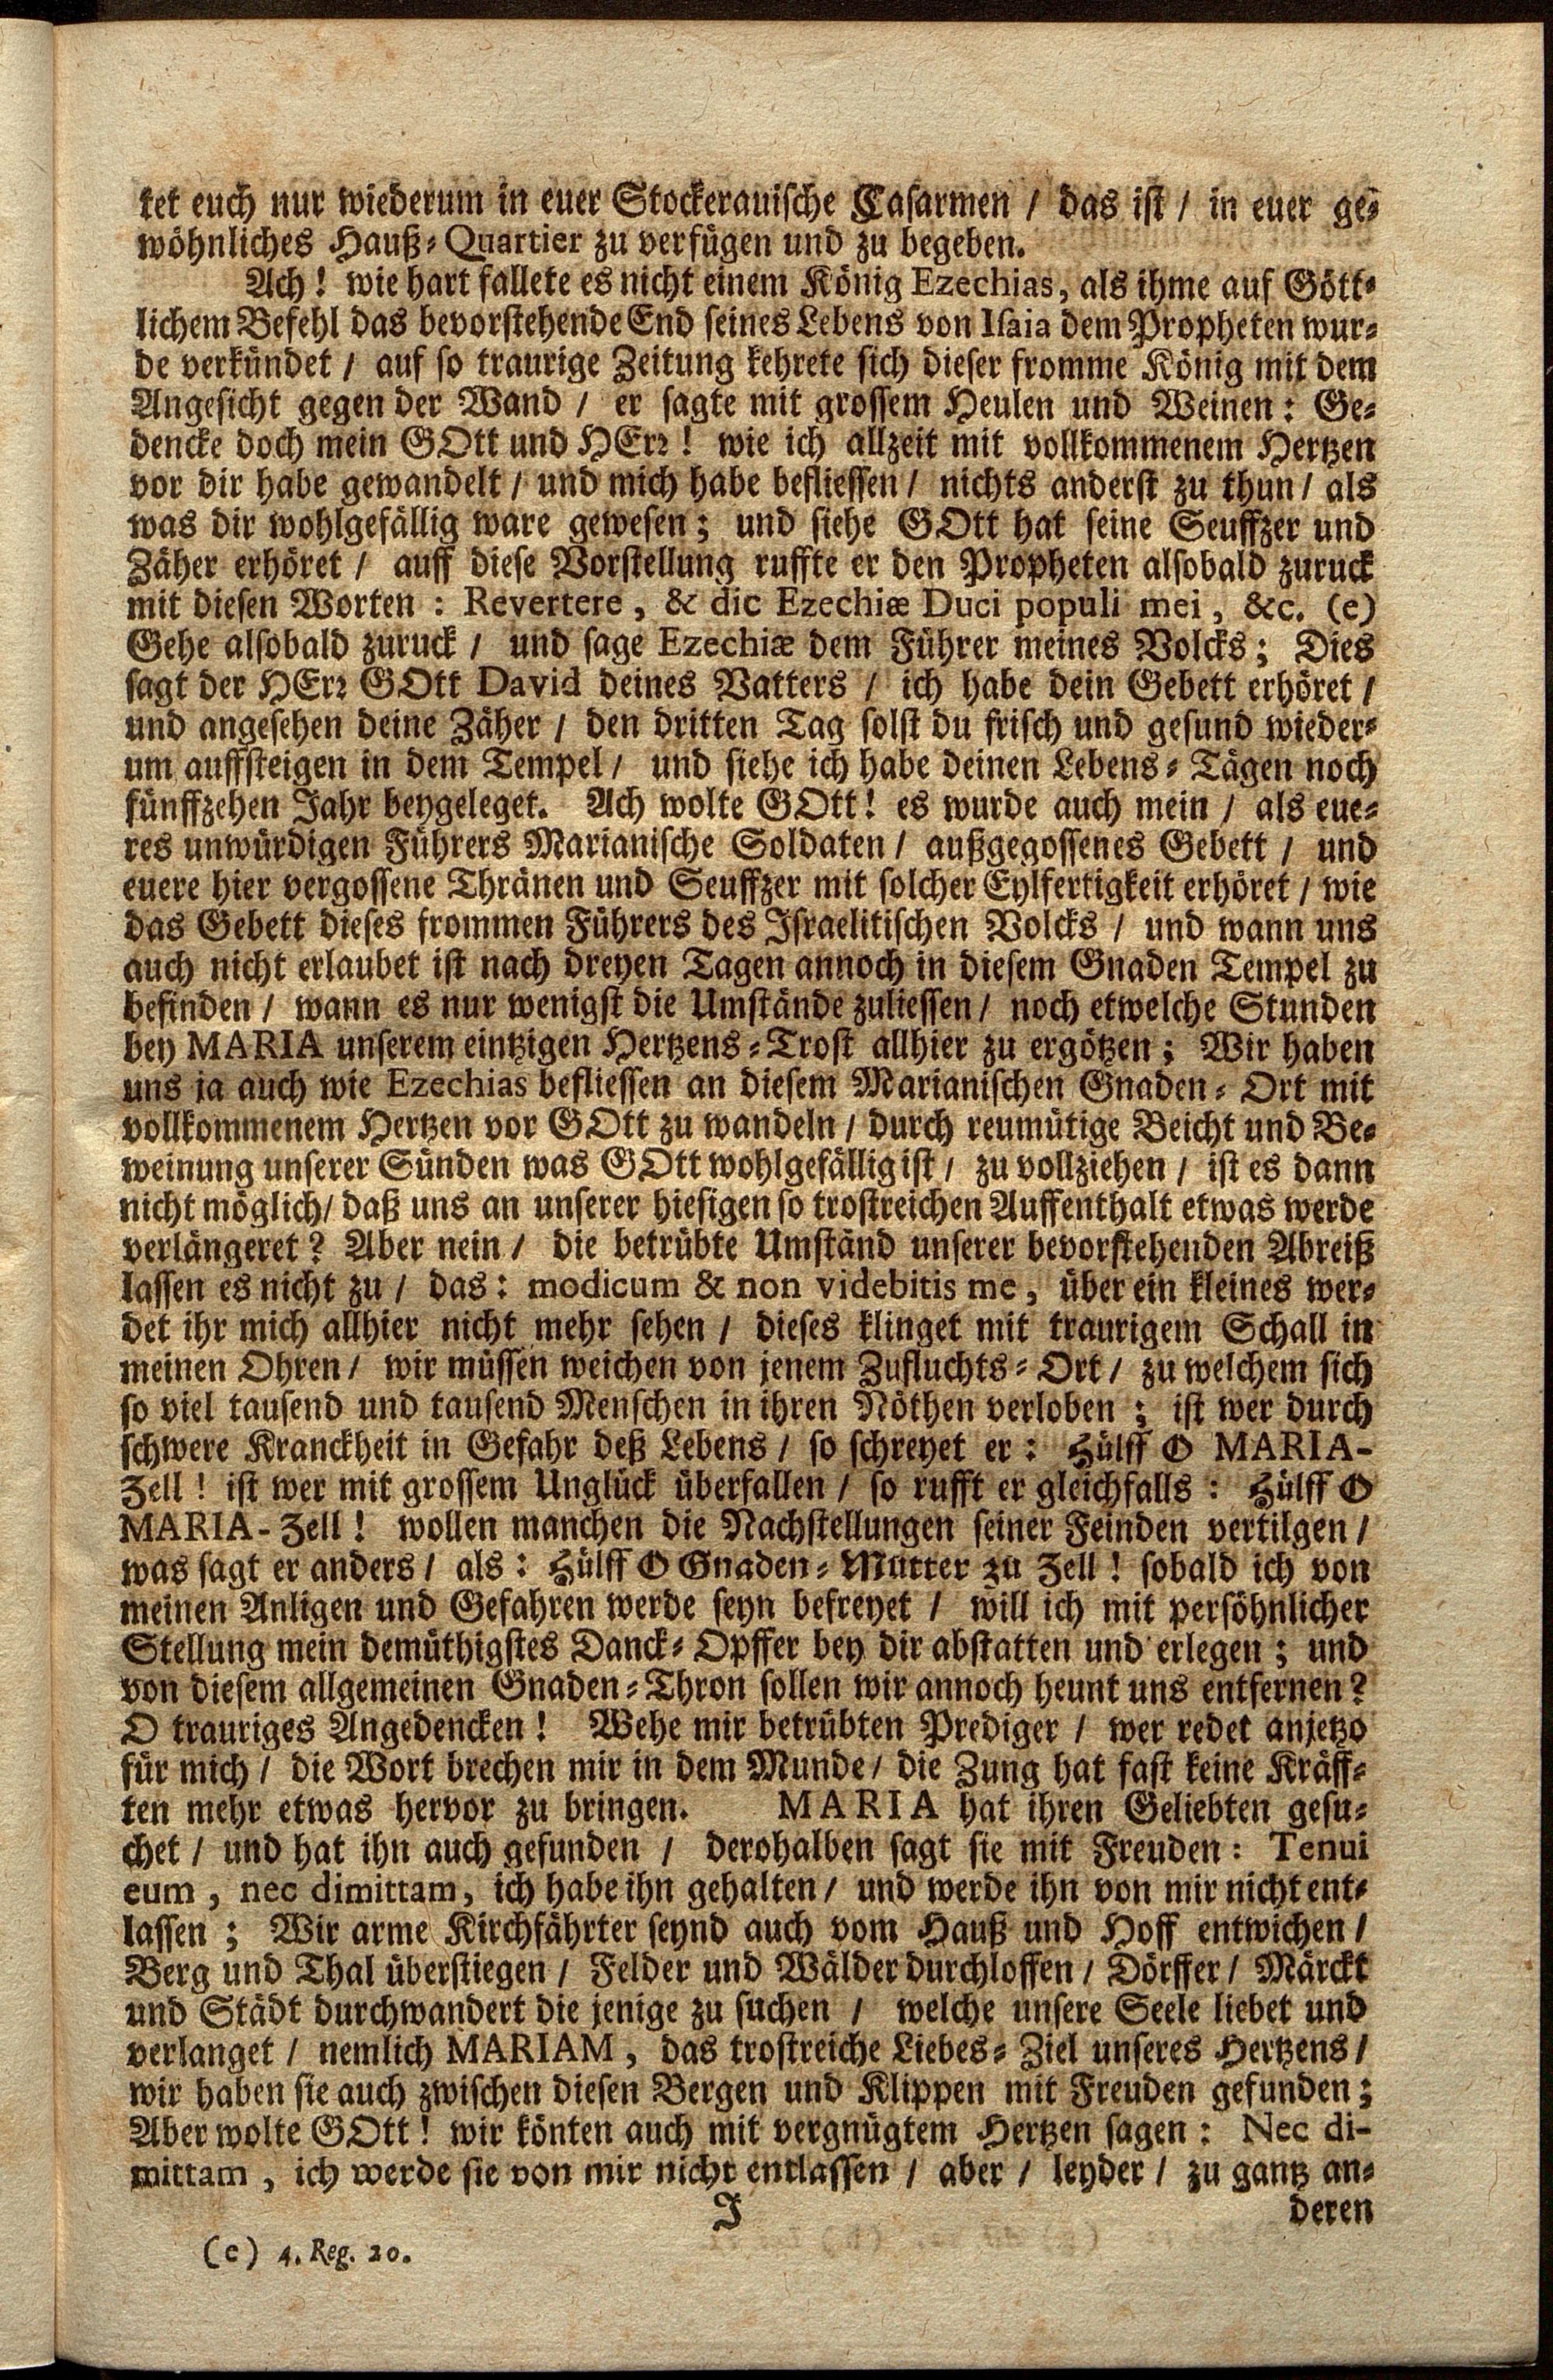 tet euch nur wiederum in euer Stockerauische Casarmen / das ist / in euer ge-
wöhnliches Hauß-Quartier zu verfügen und zu begeben.
Ach! wie hart fallete es nicht einem König Ezechias, als ihme auf Gött-
lichem Befehl das bevorstehende End seines Lebens von Isaia dem Propheten wur-
de verkündet / auf so traurige Zeitung kehrete sich dieser fromme König mit dem
Angesicht gegen der Wand / er sagte mit grossem Heulen und Weinen: Ge-
dencke doch mein GOtt und HErr! wie ich allzeit mit vollkommenem Hertzen
vor dir habe gewandelt / und mich habe befliessen / nichts anderst zu thun / als
was dir wohlgefällig ware gewesen; und siehe GOtt hat seine Seuffzer und
Zäher erhöret / auff diese Vorstellung ruffte er den Propheten alsobald zuruck
mit diesen Worten : Revertere, & dic Ezechiæ Duci populi mei, &c. (e)
Gehe alsobald zuruck / und sage Ezechiæ dem Führer meines Volcks; Dies
sagt der HErr GOtt David deines Vatters / ich habe dein Gebett erhöret /
und angesehen deine Zäher / den dritten Tag solst du frisch und gesund wieder-
um auffsteigen in dem Tempel / und siehe ich habe deinen Lebens-Tägen noch
fünffzehen Jahr beygeleget. Ach wolte GOtt! es wurde auch mein / als eue-
res unwürdigen Führers Marianische Soldaten / außgegossenes Gebett / und
euere hier vergossene Thränen und Seuffzer mit solcher Eylfertigkeit erhöret / wie
das Gebett dieses frommen Führers des Israelitischen Volcks / und wann uns
auch nicht erlaubet ist nach dreyen Tagen annoch in diesem Gnaden Tempel zu
befinden / wann es nur wenigst die Umstände zuliessen / noch etwelche Stunden
bey MARIA unserem eintzigen Hertzens-Trost allhier zu ergötzen; Wir haben
uns ja auch wie Ezechias befliessen an diesem Marianischen Gnaden-Ort mit
vollkommenem Hertzen vor GOtt zu wandeln / durch reumütige Beicht und Be-
weinung unserer Sünden was GOtt wohlgefällig ist / zu vollziehen / ist es dann
nicht möglich / daß uns an unserer hiesigen so trostreichen Auffenthalt etwas werde
verlängeret? Aber nein / die betrübte Umständ unserer bevorstehenden Abreiß
lassen es nicht zu / das: modicum & non videbitis me, über ein kleines wer-
det ihr mich allhier nicht mehr sehen / dieses klinget mit traurigem Schall in
meinen Ohren / wir müssen weichen von jenem Zufluchts-Ort / zu welchem sich
so viel tausend und tausend Menschen in ihren Nöthen verloben ; ist wer durch
schwere Kranckheit in Gefahr deß Lebens / so schreyet er: Hülff O MARIA-
Zell! ist wer mit grossem Unglück überfallen / so rufft er gleichfalls: Hülff O
MARIA-Zell! wollen manchen die Nachstellungen seiner Feinden vertilgen /
was sagt er anders / als: Hülff O Gnaden-Mutter zu Zell! sobald ich von
meinen Anligen und Gefahren werde seyn befreyet / will ich mit persöhnlicher
Stellung mein demüthigstes Danck-Opffer bey dir abstatten und erlegen; und
von diesem allgemeinen Gnaden-Thron sollen wir annoch heunt uns entfernen?
O trauriges Angedencken! Wehe mir betrübten Prediger / wer redet anjetzo
für mich / die Wort brechen mir in dem Munde / die Zung hat fast keine Kräff-
ten mehr etwas hervor zu bringen. MARIA hat ihren Geliebten gesu-
chet / und hat ihn auch gefunden / derohalben sagt sie mit Freuden: Tenui
eum, nec dimittam, ich habe ihn gehalten / und werde ihn von mir nicht ent-
lassen ; Wir arme Kirchfährter seynd auch vom Hauß und Hoff entwichen /
Berg und Thal überstiegen / Felder und Wälder durchloffen / Dörffer / Märckt
und Städt durchwandert die jenige zu suchen / welche unsere Seele liebet und
verlanget / nemlich MARIAM, das trostreiche Liebes-Ziel unseres Hertzens /
wir haben sie auch zwischen diesen Bergen und Klippen mit Freuden gefunden;
Aber wolte GOtt! wir könten auch mit vergnügtem Hertzen sagen: Nec di-
mittam, ich werde sie von mir nicht entlassen / aber / leyder / zu gantz an-
J deren
(e) 4. Reg. 20.